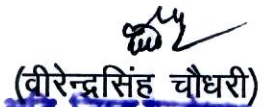 (वीरेन्द्रसिंह चौधरी)